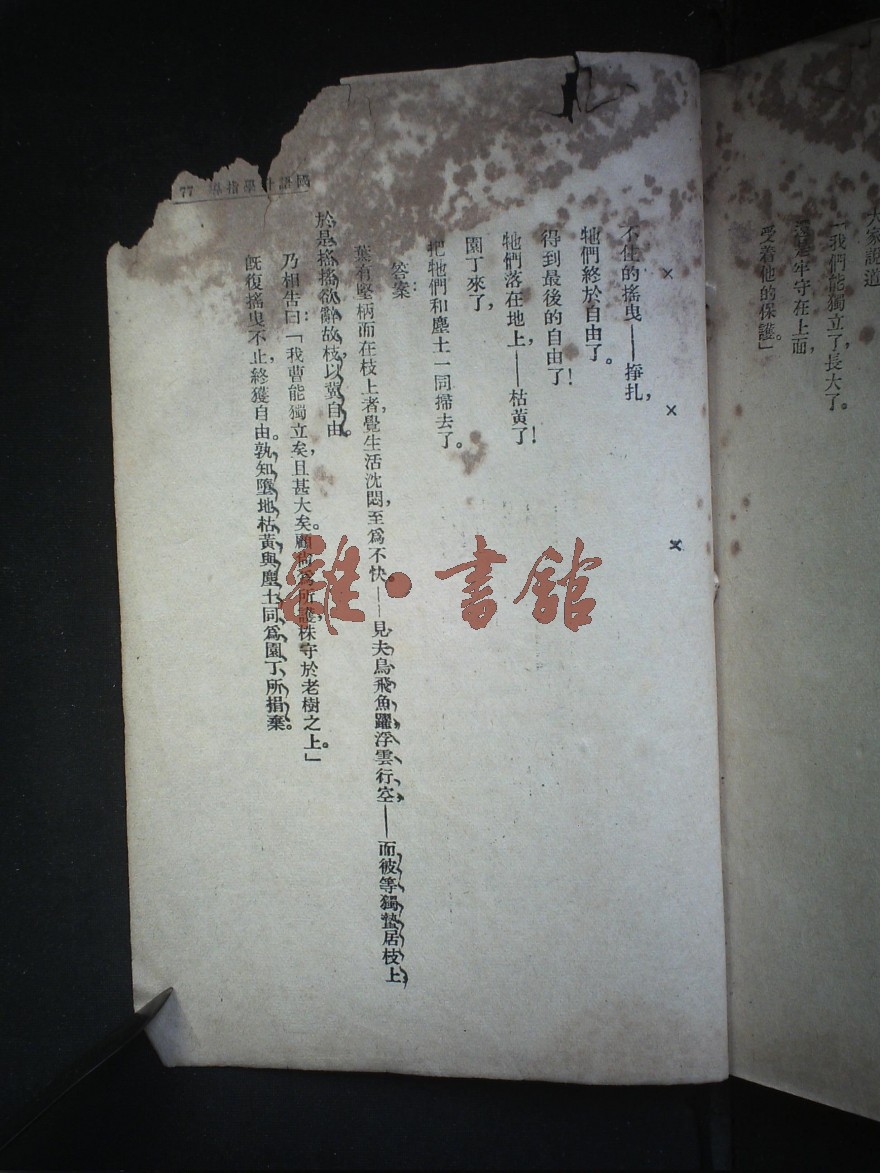 大家說道
「我們能獨立了,長大了。
還是牢守在上面,
受着他的保護」。
× × ×
不住的搖曳——掙扎,
牠們終於自由了。
得到最後的自由了!
牠們落在地上——枯黃了!
園丁來了,
把牠們和塵土一同掃去了。
答案:
葉有堅柄而在枝上者,覺生活沈悶,至爲不快。——見夫鳥飛魚躍,浮雲行空,——而彼等獨蟄居枝上,
於是搖搖欲辭故枝,以冀自由。
乃相告曰:「我曹能獨立矣,且甚大矣。顧尚爲所護,株守於老樹之上。」
旣復搖曳不止,終獲自由。孰知墮地枯黃,與塵土同爲園丁所捐棄。
國語 學指導 77
雜·書館